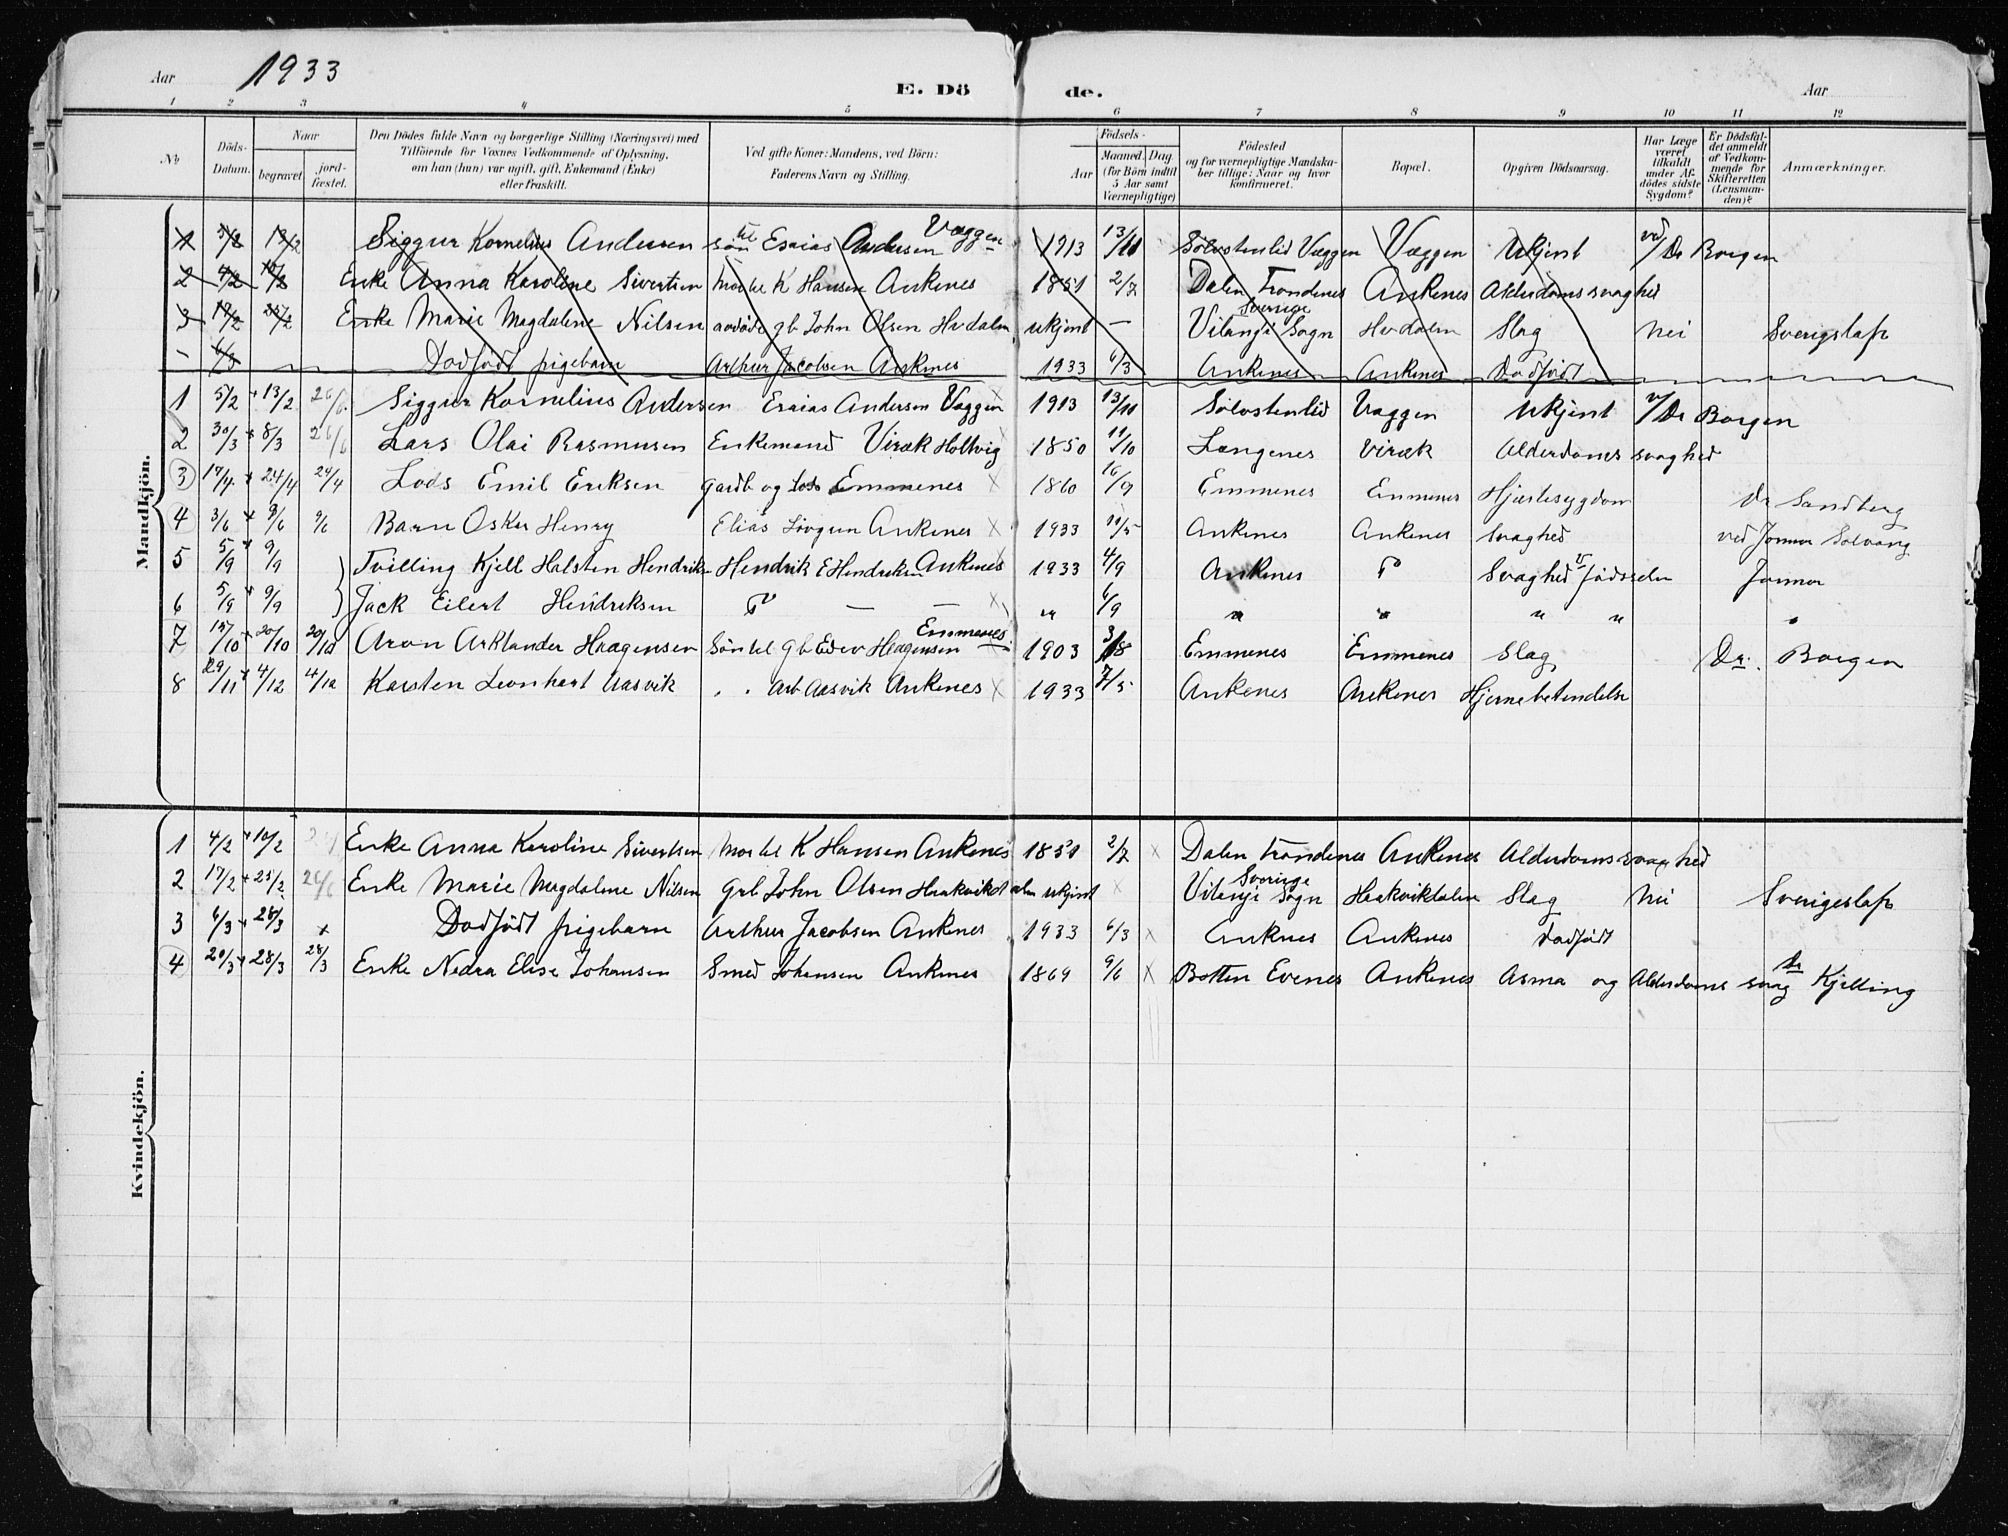 Aar 1933 E. Dö de. Aar
1 2 3 4 5 6 7 8 9 10 11 12
No Döds-Datum. Naar begravet. jord-fæstet. Den Dödes fulde Navn og borgerlige Stilling (Næringsvei) med Tilföiende for Voxnes Vedkommende af Oplysning, om han (hun) var ugift, gift, Enkemand (Enke) eller fraskilt. Ved gifte Koner: Mandens, ved Börn: Faderens Navn og Stilling. Födsels- Aar Maaned. Dag. (for Börn indtil 5 Aar samt Værnepligtige) Födested og for værnepligtige Mandska-ber tillige: Naar og hvor konfirmeret. Bopæl. Opgiven Dödsaarsag. Har Læge været tilkaldt under Af-dödes sidste Sygdom? Er Dödsfal-det anmeldt af Vedkom-mende for Skifteretten (Lensman-den)? Anmærkninger.
Mandkjön.
1 3/2 13/2 Siggur Kornelius Andersen søn til Esaias Andersen Væggen 1913 13/11 Sølvstenlid Væggen Væggen Ukjent ved/Dr Borgen
2 4/2 10/2 Enke Anna Karoline Sivertsen Mor til K Hansen Ankenes 1851 2/7 Dalen Trondenes Ankenes Alderdomssvaghed
3 17/2 25/2 Enke Marie Magdalene Nilsen gb John Olsen Hvdalen ukjent — Vilanje Sogn Sverige Hvdalen Slag Nei Sverigslap
— 6/3 Dødfødt pigebarn Arthur Jacobsen Ankenes 1933 6/3 Ankenes Ankenes Dødfødt
1 5/2 + 13/2 26/6 Siggur Kornelius Andersen Esaias Andersen Væggen 1913 13/11 Sølvstenlid Væggen Ukjent v/Dr Borgen
2 30/3 + 8/3 26/6 Lars Olai Rasmussen Enkemand Viræk Holtvig 1850 11/10 Langenes Viræk Alderdomssvaghed
3 17/4 + 24/4 24/4 Lods Emil Eriksen Gardb og Lods Emmenes X 1860 16/9 Emmenes Emmenes Hjertesygdom Dr Sandberg
4 3/6 + 9/6 9/6 Barn Oskar Henry Elias Løvgren Ankenes X 1933 11/5 Ankenes Ankenes Svaghed ved Jormor Solvang
5 5/9 + 9/9 Tvilling Kjell Halsten Hendriksen Hendrik E Hendriksen Ankenes 1933 4/9 Ankenes Svaghed v fødselen Jormor
6 5/9 + 9/9 Jack Eilert Hendriksen — — X " 4/9 " " " " "
7 15/10 + 20/10 20/10 Aron Arklander Haagensen Søn til gb Edev Haagensen Emmenes 1903 3/8 Emmenes Emmenes Slag Dr. Borgen
8 29/11 + 4/12 4/12 Karsten Leonhart Aasvik . . Arb Aasvik Ankenes X 1933 7/5 Ankenes Ankenes Hjernebetendelse
Kvindekjön.
1 4/2 + 10/2 Enke Anna Karoline Sivertsen Mor til K Hansen Ankenes 1851 2/7 X Dalen Trondenes Ankenes Alderdomssvaghed
2 17/2 + 25/2 26/6 Enke Marie Magdalene Nilsen Grb John Olsen Haakvikdalen ukjent X Vilanje Sogn Sverige Haakvikdalen Slag Nei Sverigeslap
3 6/3 + 28/3 x Dødfødt pigebarn Arthur Jacobsen Ankenes 1933 6/3 X Anknes Ankenes Dødfødt
4 20/3 + 28/3 28/3 Enke Nedra Elise Johansen Smed Johansen Ankenes 1869 9/6 X Botten Evenes Ankenes Asma og Alderdoms svag Dr Kjelling